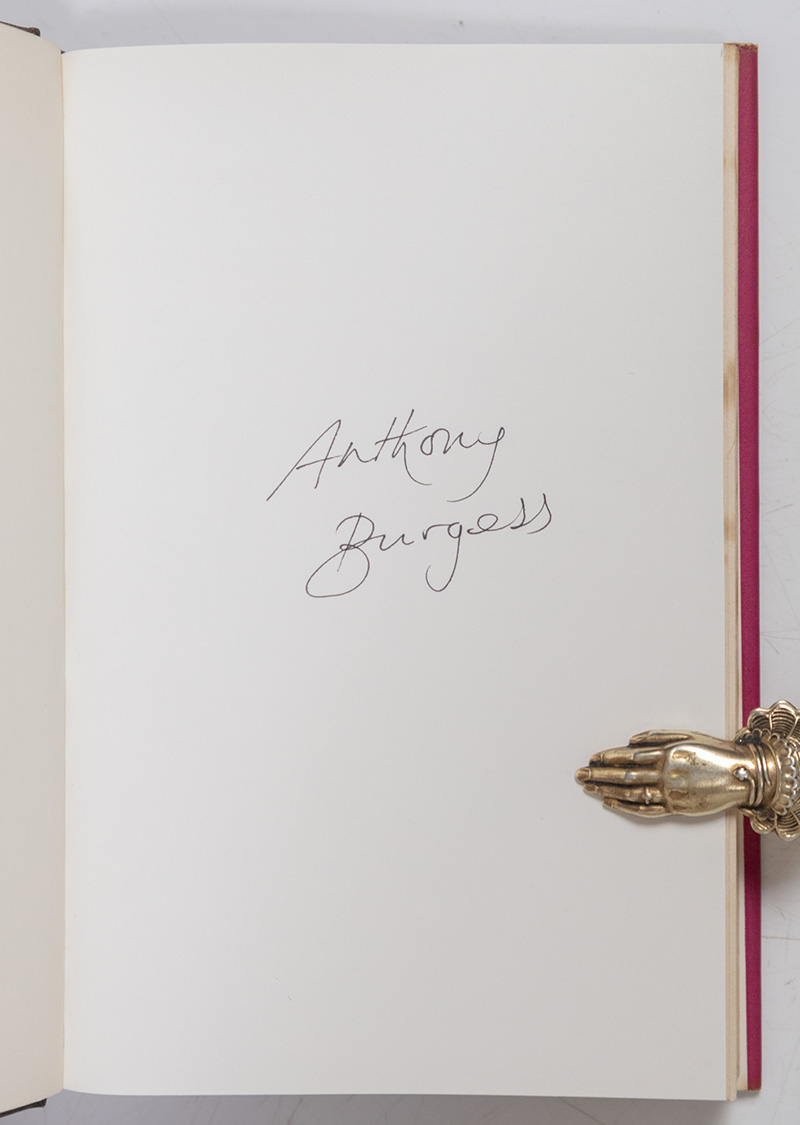 Anthony
Burgess